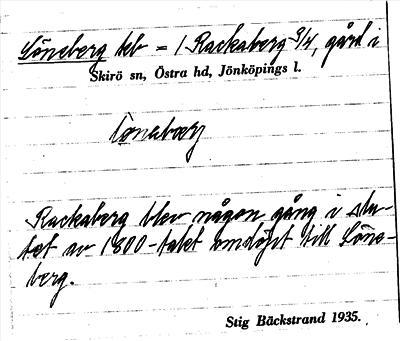 Löneberg hb = 1 Rackaberg 3/4, gård i
Skirö sn, Östra hd, Jönköpings l.
Rackaberg blev någon gång i slu-
tet av 1800-talet omdöpt till Löne-
berg.
Stig Bäckstrand 1935.